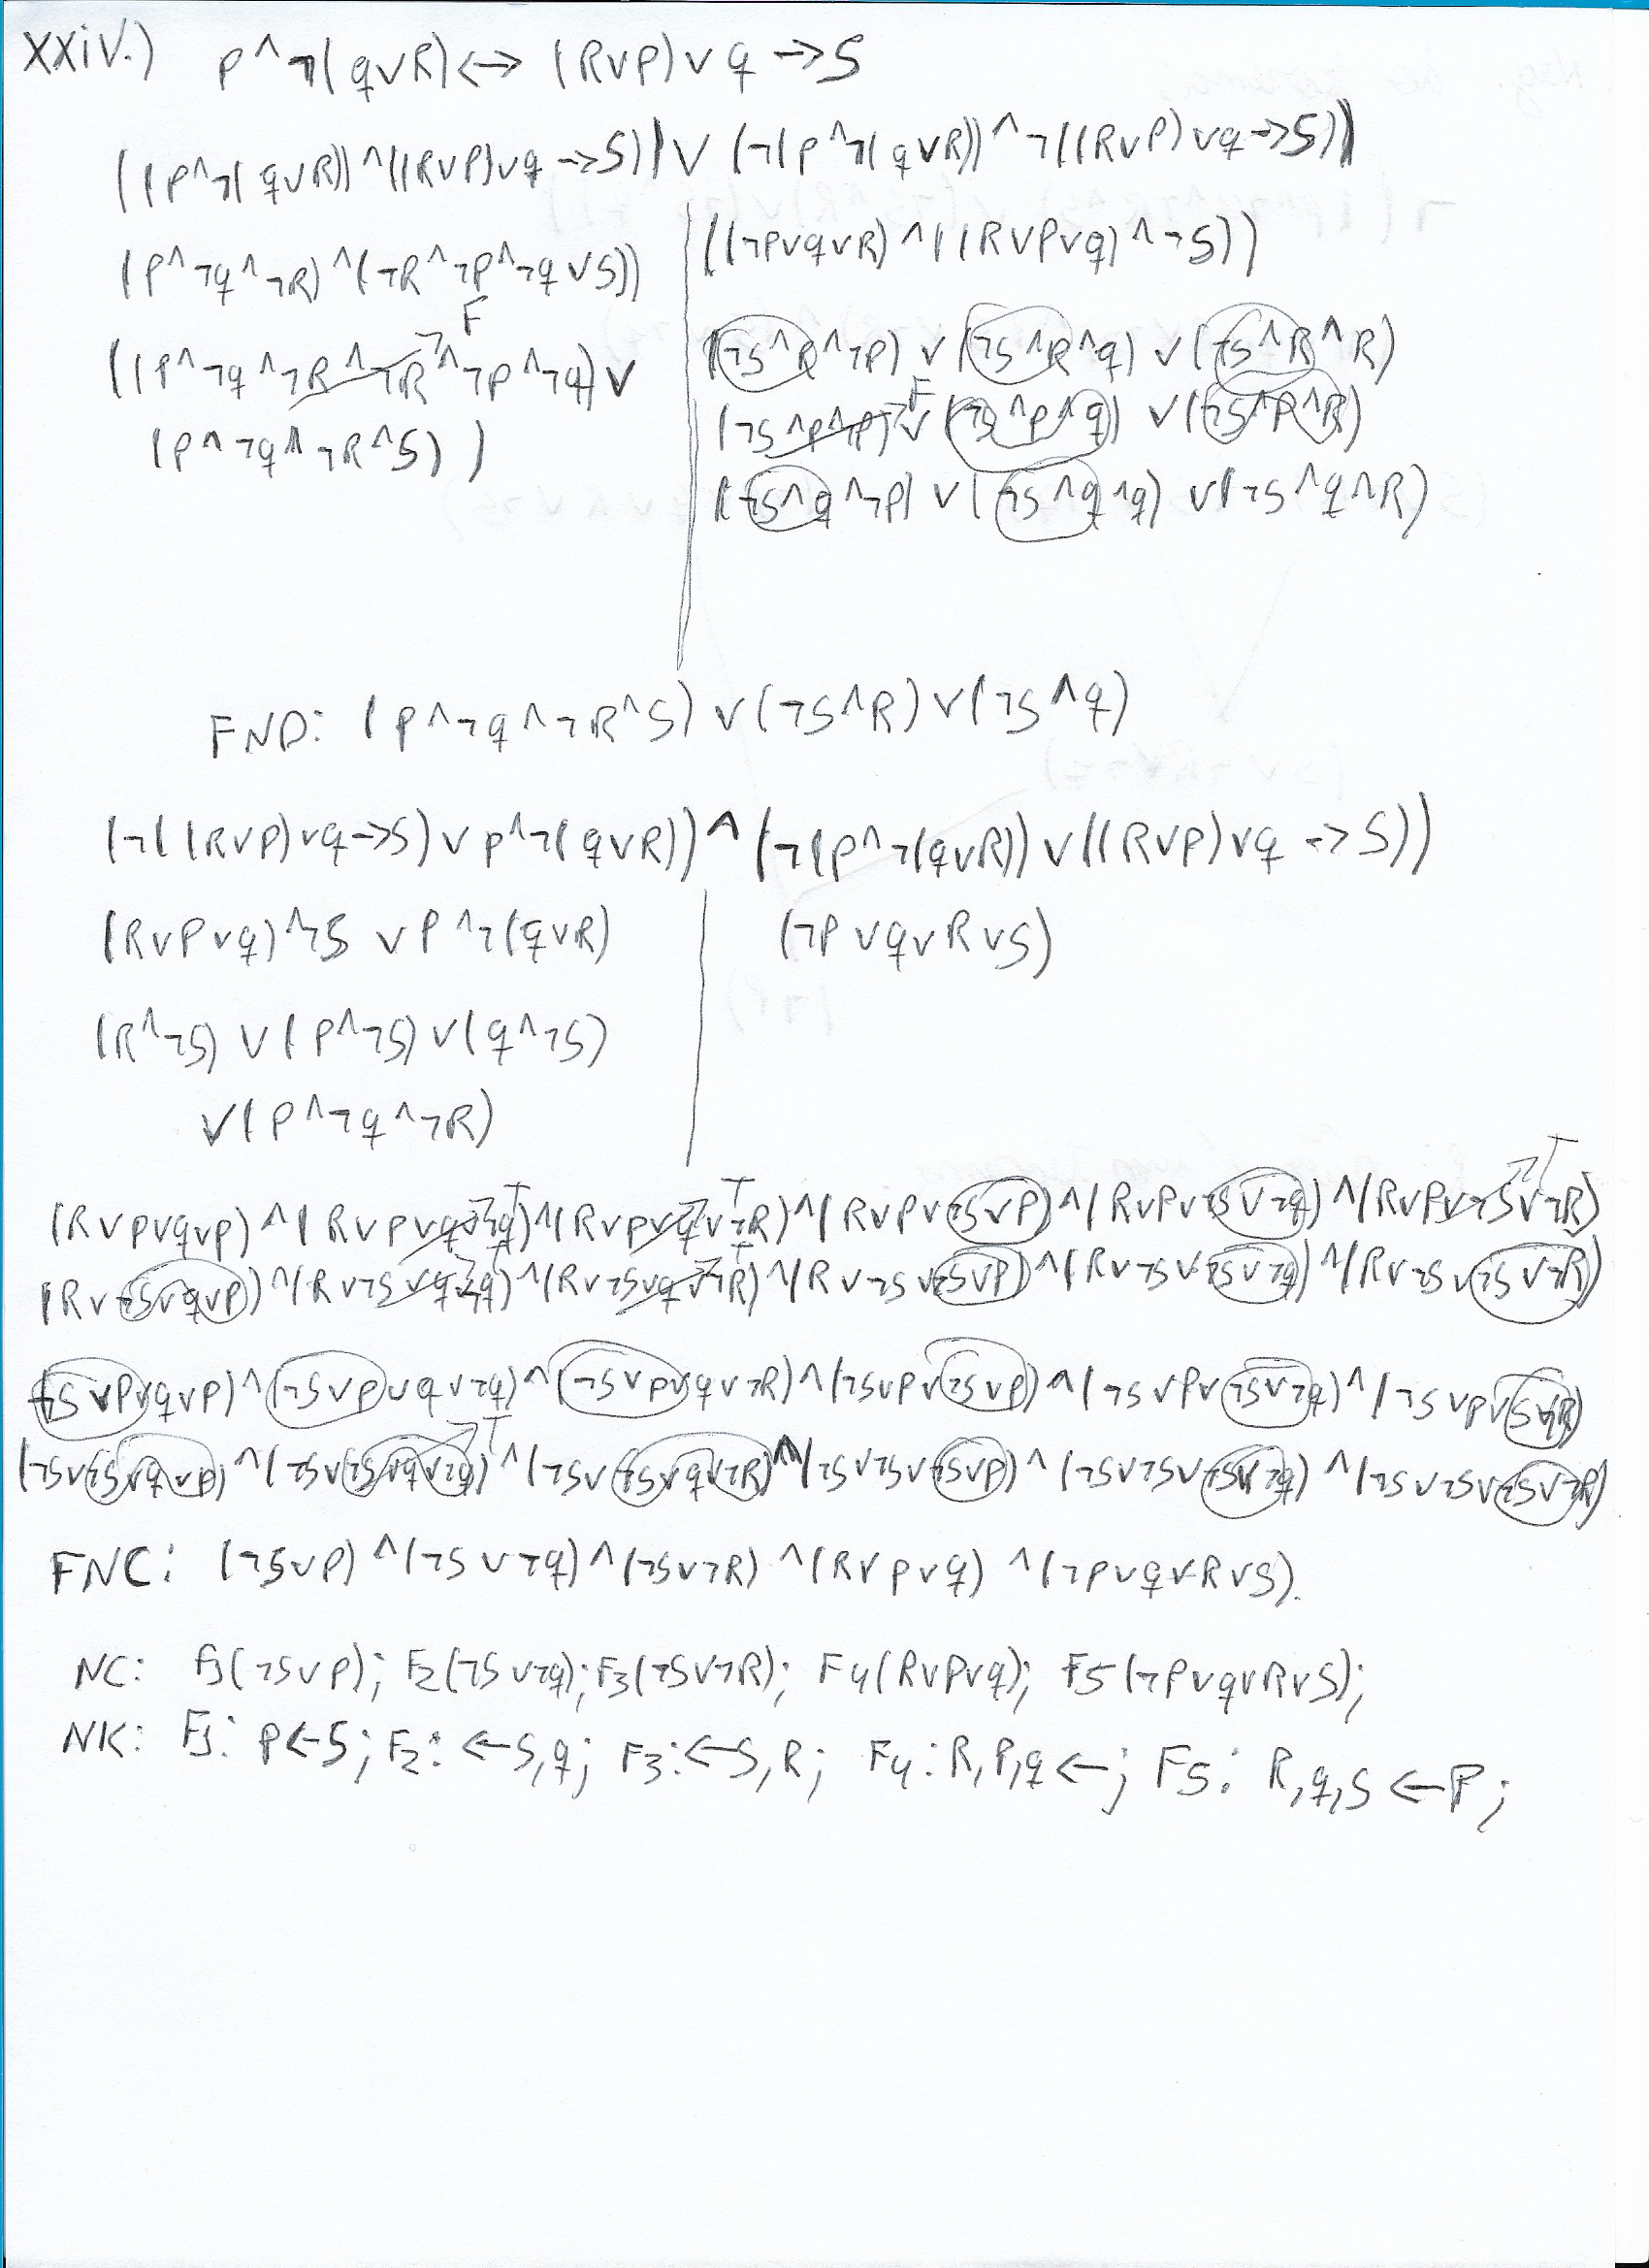 xxiv.) p ^ ¬(q∨R) <-> (R∨P)∨q ->S
((p^¬(q∨R))^((R∨P)∨q ->S))∨(¬(p^¬(q∨R))^¬((R∨P)∨q->S))
(P^¬q^¬R)^(¬R^¬P^¬q∨S))
((¬P∨q∨R)^((R∨P∨q)^¬S))
F
((P^¬q^¬R^¬R^¬P^¬q)∨
(P^¬q^¬R^S))
(¬S^R^¬P)∨(¬S^R^q)∨(¬S^R^R)
(¬S^P^¬P) F ∨(¬S^P^q)∨(¬S^P^R)
(¬S^q^¬P)∨(¬S^q^q)∨(¬S^q^R)
FND: (P^¬q^¬R^S)∨(¬S^R)∨(¬S^q)
(¬((R∨P)∨q->S)∨p^¬(q∨R))^(¬(p^¬(q∨R))∨((R∨P)∨q->S))
(R∨P∨q)^¬S ∨P^¬(q∨R)
(¬P∨q∨R∨S)
(R^¬S)∨(P^¬S)∨(q^¬S)
∨(P^¬q^¬R)
(R∨P∨q∨P)^(R∨P∨q∨¬q) T ^(R∨P∨q∨¬R) T ^(R∨P∨¬S∨P)^(R∨P∨¬S∨¬q)^(R∨P∨¬S∨¬R) T
(R∨¬S∨q∨P)^(R∨¬S∨q∨¬q) T ^(R∨¬S∨q∨¬R) T ^(R∨¬S∨¬S∨P)^(R∨¬S∨¬S∨¬q)^(R∨¬S∨¬S∨¬R)
(¬S∨P∨q∨P)^(¬S∨P∨q∨¬q)^(¬S∨P∨q∨¬R)^(¬S∨P∨¬S∨P)^(¬S∨P∨¬S∨¬q)^(¬S∨P∨¬S∨¬R)
(¬S∨¬S∨q∨P)^(¬S∨¬S∨q∨¬q) T ^(¬S∨¬S∨q∨¬R)^(¬S∨¬S∨¬S∨P)^(¬S∨¬S∨¬S∨¬q)^(¬S∨¬S∨¬S∨¬R)
FNC: (¬S∨P)^(¬S∨¬q)^(¬S∨¬R)^(R∨P∨q)^(¬P∨q∨R∨S).
NC: F1(¬S∨P); F2(¬S∨¬q); F3(¬S∨¬R); F4(R∨P∨q); F5(¬P∨q∨R∨S);
NK: F1: P<-S; F2: <-S,q; F3:<-S,R; F4: R,P,q<-; F5: R,q,S<-P;